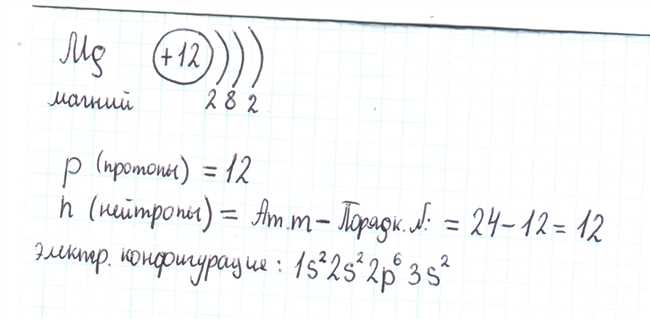 Mg +12
магний 2 8 2
p (протоны) = 12
n (нейтроны) = Ат.m – Порядк.№: = 24 – 12 = 12
электр. конфигурацие: 1s²2s²2p⁶3s²